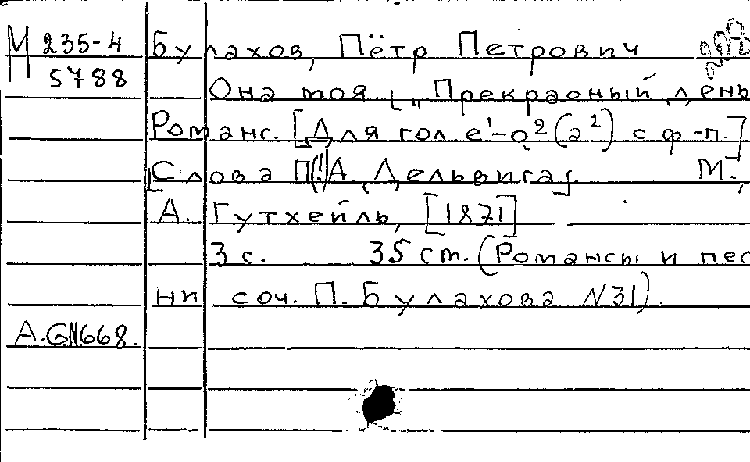 М 235-4 Булахов, Пётр Петрович
5788
Она моя [„Прекрасный день
Романс. [Для гол. e¹-g² (a²) с ф-п.]
[Слова П(!)А. Дельвига]. М.,
А. Гутхейль, [1871]
3 с. 35 cm. (Романсы и пес
ни соч. П. Булахова №31).
А.G№668.